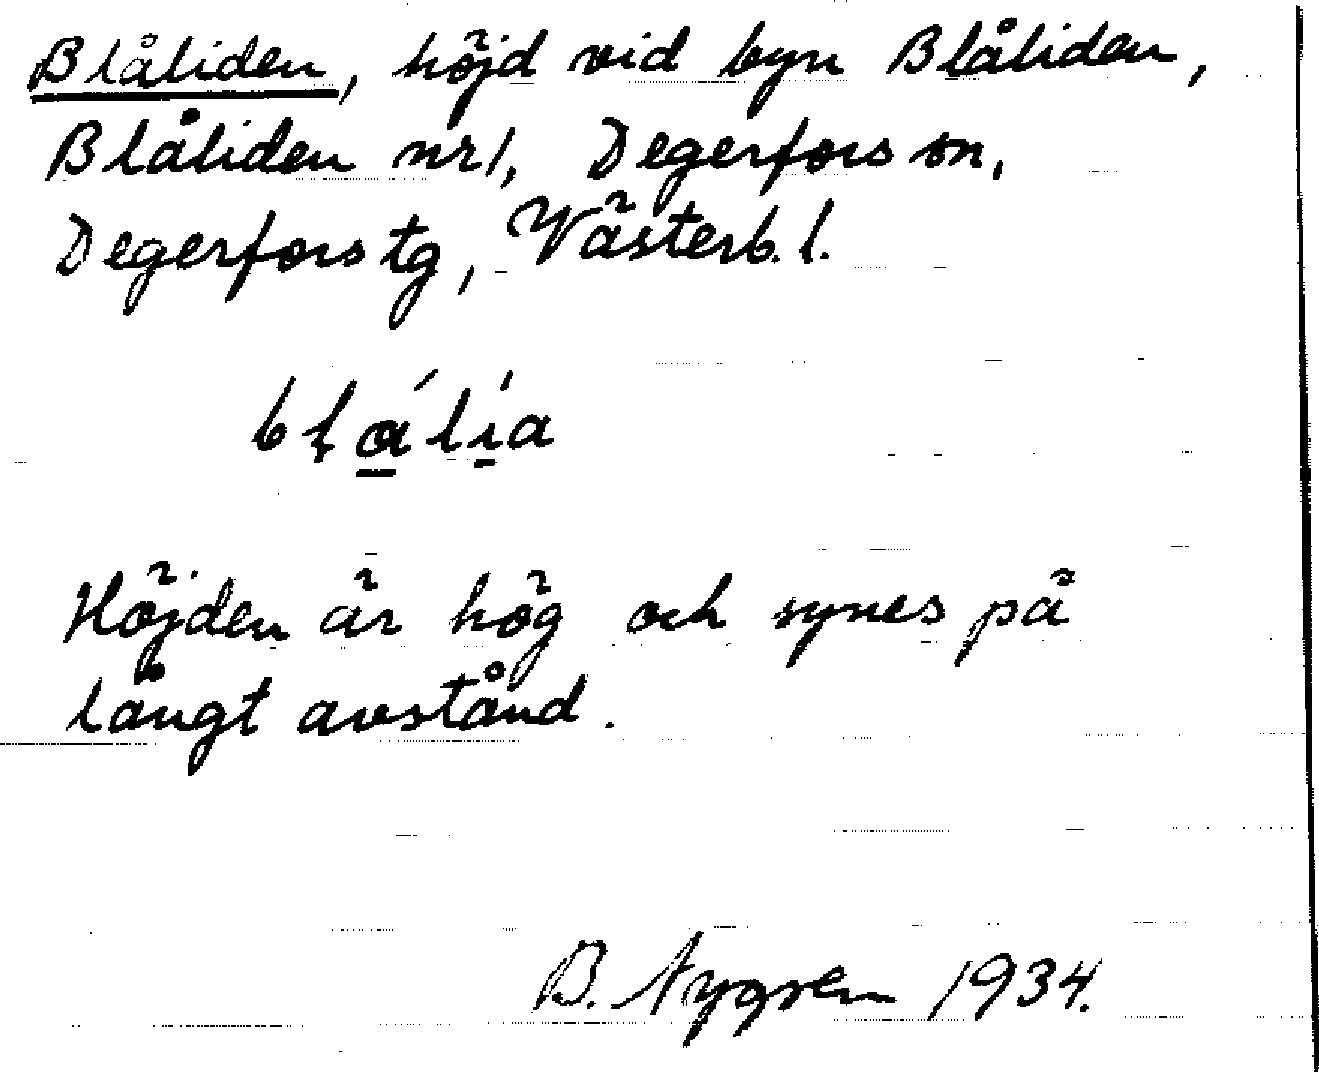 Blåliden, höjd vid byn Blåliden,
Blåliden nr 1, Degerfors sn,
Degerfors tg, Västerb. l.
blɑ́lía
Höjden är hög och synes på
långt avstånd.
B. Nygren 1934.